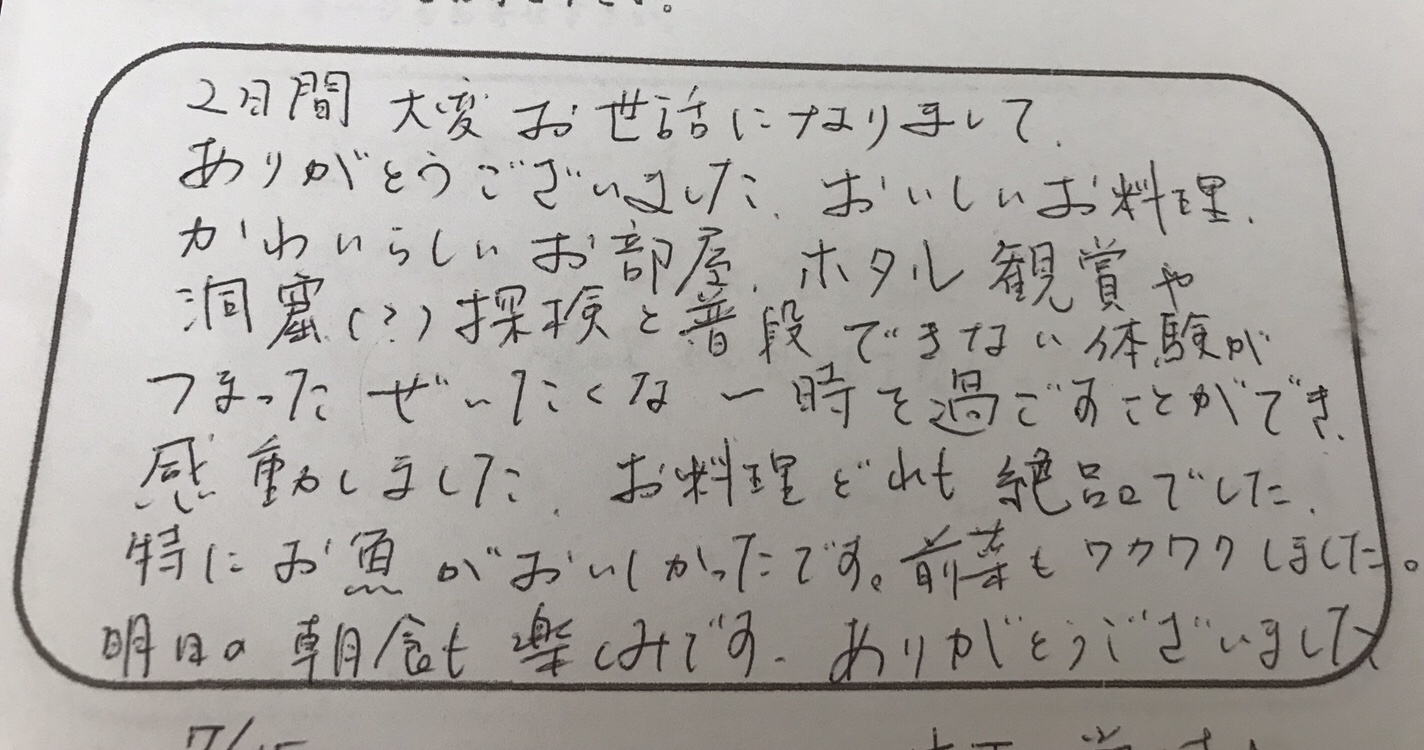 2日間 大変お世話になりまして、
ありがとうございました。おいしいお料理、
かわいらしいお部屋、ホタル観賞や
洞窟(?)探検と普段できない体験が
つまったぜいたくな一時を過ごすことができ、
感動しました。お料理どれも絶品でした。
特にお魚がおいしかったです。前菜もワクワクしました。
明日の朝食も楽しみです。ありがとうございました
7/15